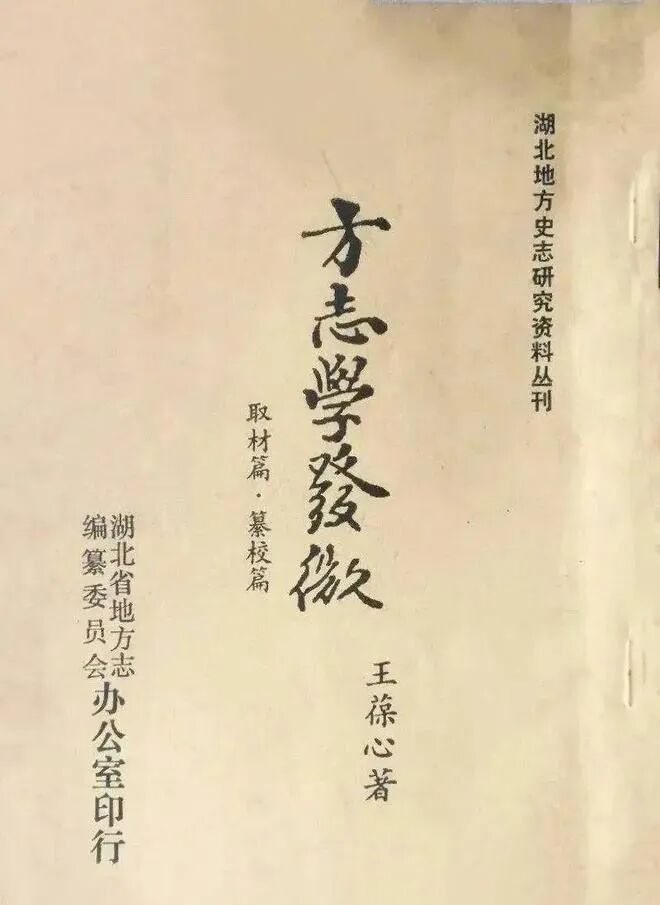 湖北地方史志研究资料丛刊
方志學發微
取材篇·纂校篇
王葆心著
湖北省地方志
编纂委员会
办公室印行